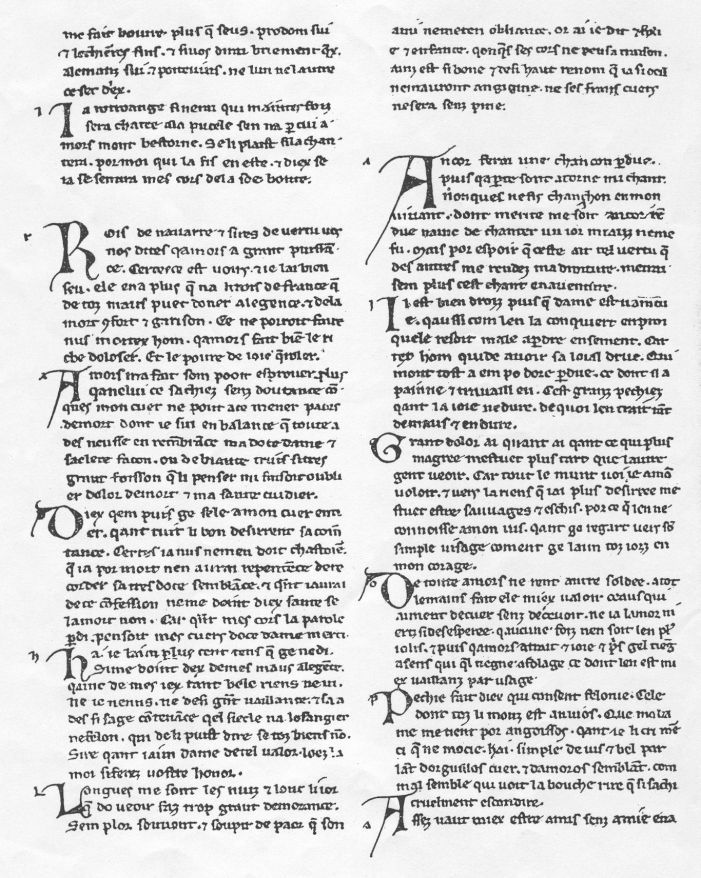 me fait boivre plus q̃ seus. prodom sui
⁊ lechierres fins. ⁊ sivos dirai briement
alemanz sui ⁊ poitevins. ne lun nel autre
ce set
la rotroange finerai qui maintes foiz
sera chatee ala pucele sen na p cui a
mors mont bestorne. Se li plaist si la chan
tera. por moi qui la fis en este. ⁊ diex se
ia se sentira mes cors de la soe bonte.
Rois de navarre ⁊ sires de vertu vos
nos dites qamors a grant puissā
ce. Certes est voirs. ⁊ ie lai bien
seu. ele en a plus q̃ na li rois de france q̃
de toz maus puet doner alegence. ⁊ de la
mort ꝯfort ⁊ garison. Ce ne porroit faire
nus mortex hom. qamors fait biē le ri
che doloser. Et le povre de ioie
Amors ma fait som pooir esprover. plus
qanelui ce sachiez senz doutance
ques mon cuer ne point ace mener paors
demort dont ie sui en balance q̃ toute a
des neusse en rembrāce ma doce dame ⁊
sa clere facon. ou de biaute truis si tres
grant foisson q̃ li penser mi faisoit oubli
er dolor demort ⁊ ma faute cuidier.
Diex qem puis ge se le a mon cuer enti
er. qant tuit li bon desirrent sa coin
tance. Certes ia nus nemen doit chastoier.
q̃ ia por mort nen avrai repentēce de re
corder sa tres doce semblāce. ⁊ iavrai
dece cōfession ne me doint diex sante se
la mort non. Car mes cors la parole
pdi. pensoit mes cuers doce dame merci
Hai ie laim plus cent tens q̃ ge ne di.
Si me doint dex de mes maus alegēce.
qainc de mes iex tant bele riens ne vi.
ne ie nenus. ne desi gñt vaillance. ⁊ sa a
des si sage cōtenāce qel siecle na losangier
ne felon. qui de li puist dire se toz biens nō.
Sire qant iaim dame de tel valor. loez la
moi si ferez vostre honor.
Longues me sont les nuiz ⁊ lonc li ior
q̃ do veoir faiz trop grant demorance.
Sem plor souvent. ⁊ soupir de paor q̃ son
ami ne met en obliance. or ai ie dit
e ⁊ enfance. qonqes ses cors ne pensa traison.
ainz est si bone ⁊ de si haut renom q̃ ia si oeil
nem avront angigine. ne ses frans cuers
ne sera senz pitie.
Ancor ferai une chancon pdue.
puis qa perte sont atorne mi chant.
non ques ne fis chanchon en mon
vivant. dont merite me soit ancor ren
due vaine de chanter un ior mraiz neme
fu. mais por espoir q̃ ceste ait tel vertu q̃
des autres me rendez ma droiture. metrai
sem plus cest chant en aventure.
Il est bien droiz puis q̃ dame est vaincu
e. qaussi com len la conquiert en proi
quele resoit male apdre ensement. Car
tex hom quide avoir sa loial drue. Qui
mont tost a em po dore pdue. ce dont il a
painne ⁊ travaill eu. Cest granz pechiez
qant la ioie ne dure. de quoi len trait tāt
de maus ⁊ endure.
Grant dolor ai qvant ai qant ce qui plus
magree mestuet plus tart que lautre
gent veoir. Car tout le munt voi ie amō
voloir. ⁊ vers la riens q̃ iai plus desirree me
stuet estre sauvages ⁊ eschis. por ce q̃ len ne
connoisse a mon vis. qant ge regart vers sō
simple visage coment ge laim toz iorz en
mon corage.
De toute amors ne rent autre soldee. a toz
lemains fait ele miex valoir. ceaus qui
aiment de cuer senz decevoir. ne ia lamor ni
ert si desesperee. qaucune foiz nen soit len pl
iolis. ⁊ puis qamors atrait ⁊ ioie ⁊
asens qui q̃l tiegne afolage ce dont len est mi
ex vaillanz par usage
Pechie fait diex qui consent felonie. Cele
dont toz li monz est anvios. Que mo ba
me me tient por angoissos. qant ie li cri me
ci q̃ ne mocie. Hai. simple de vis ⁊ bel par
lāt dorguillos cuer. ⁊ damoros semblāt. com
mal semble qui voit la bouche rire q̃ si sachi
a cruelment escondire.
Assez vaut miex estre amis senz amie